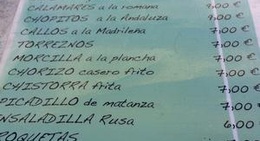 CALAMARES a la romana 9,00 €
CHOPITOS a la Andaluza 9,00 €
CALLOS a la Madrileña 7,00 €
TORREZNOS 7,00 €
MORCILLA a la plancha 7,00 €
CHORIZO casero frito 7,00 €
CHISTORRA frita 7,00 €
PICADILLO de matanza 7,00 €
ENSALADILLA Rusa 6,00